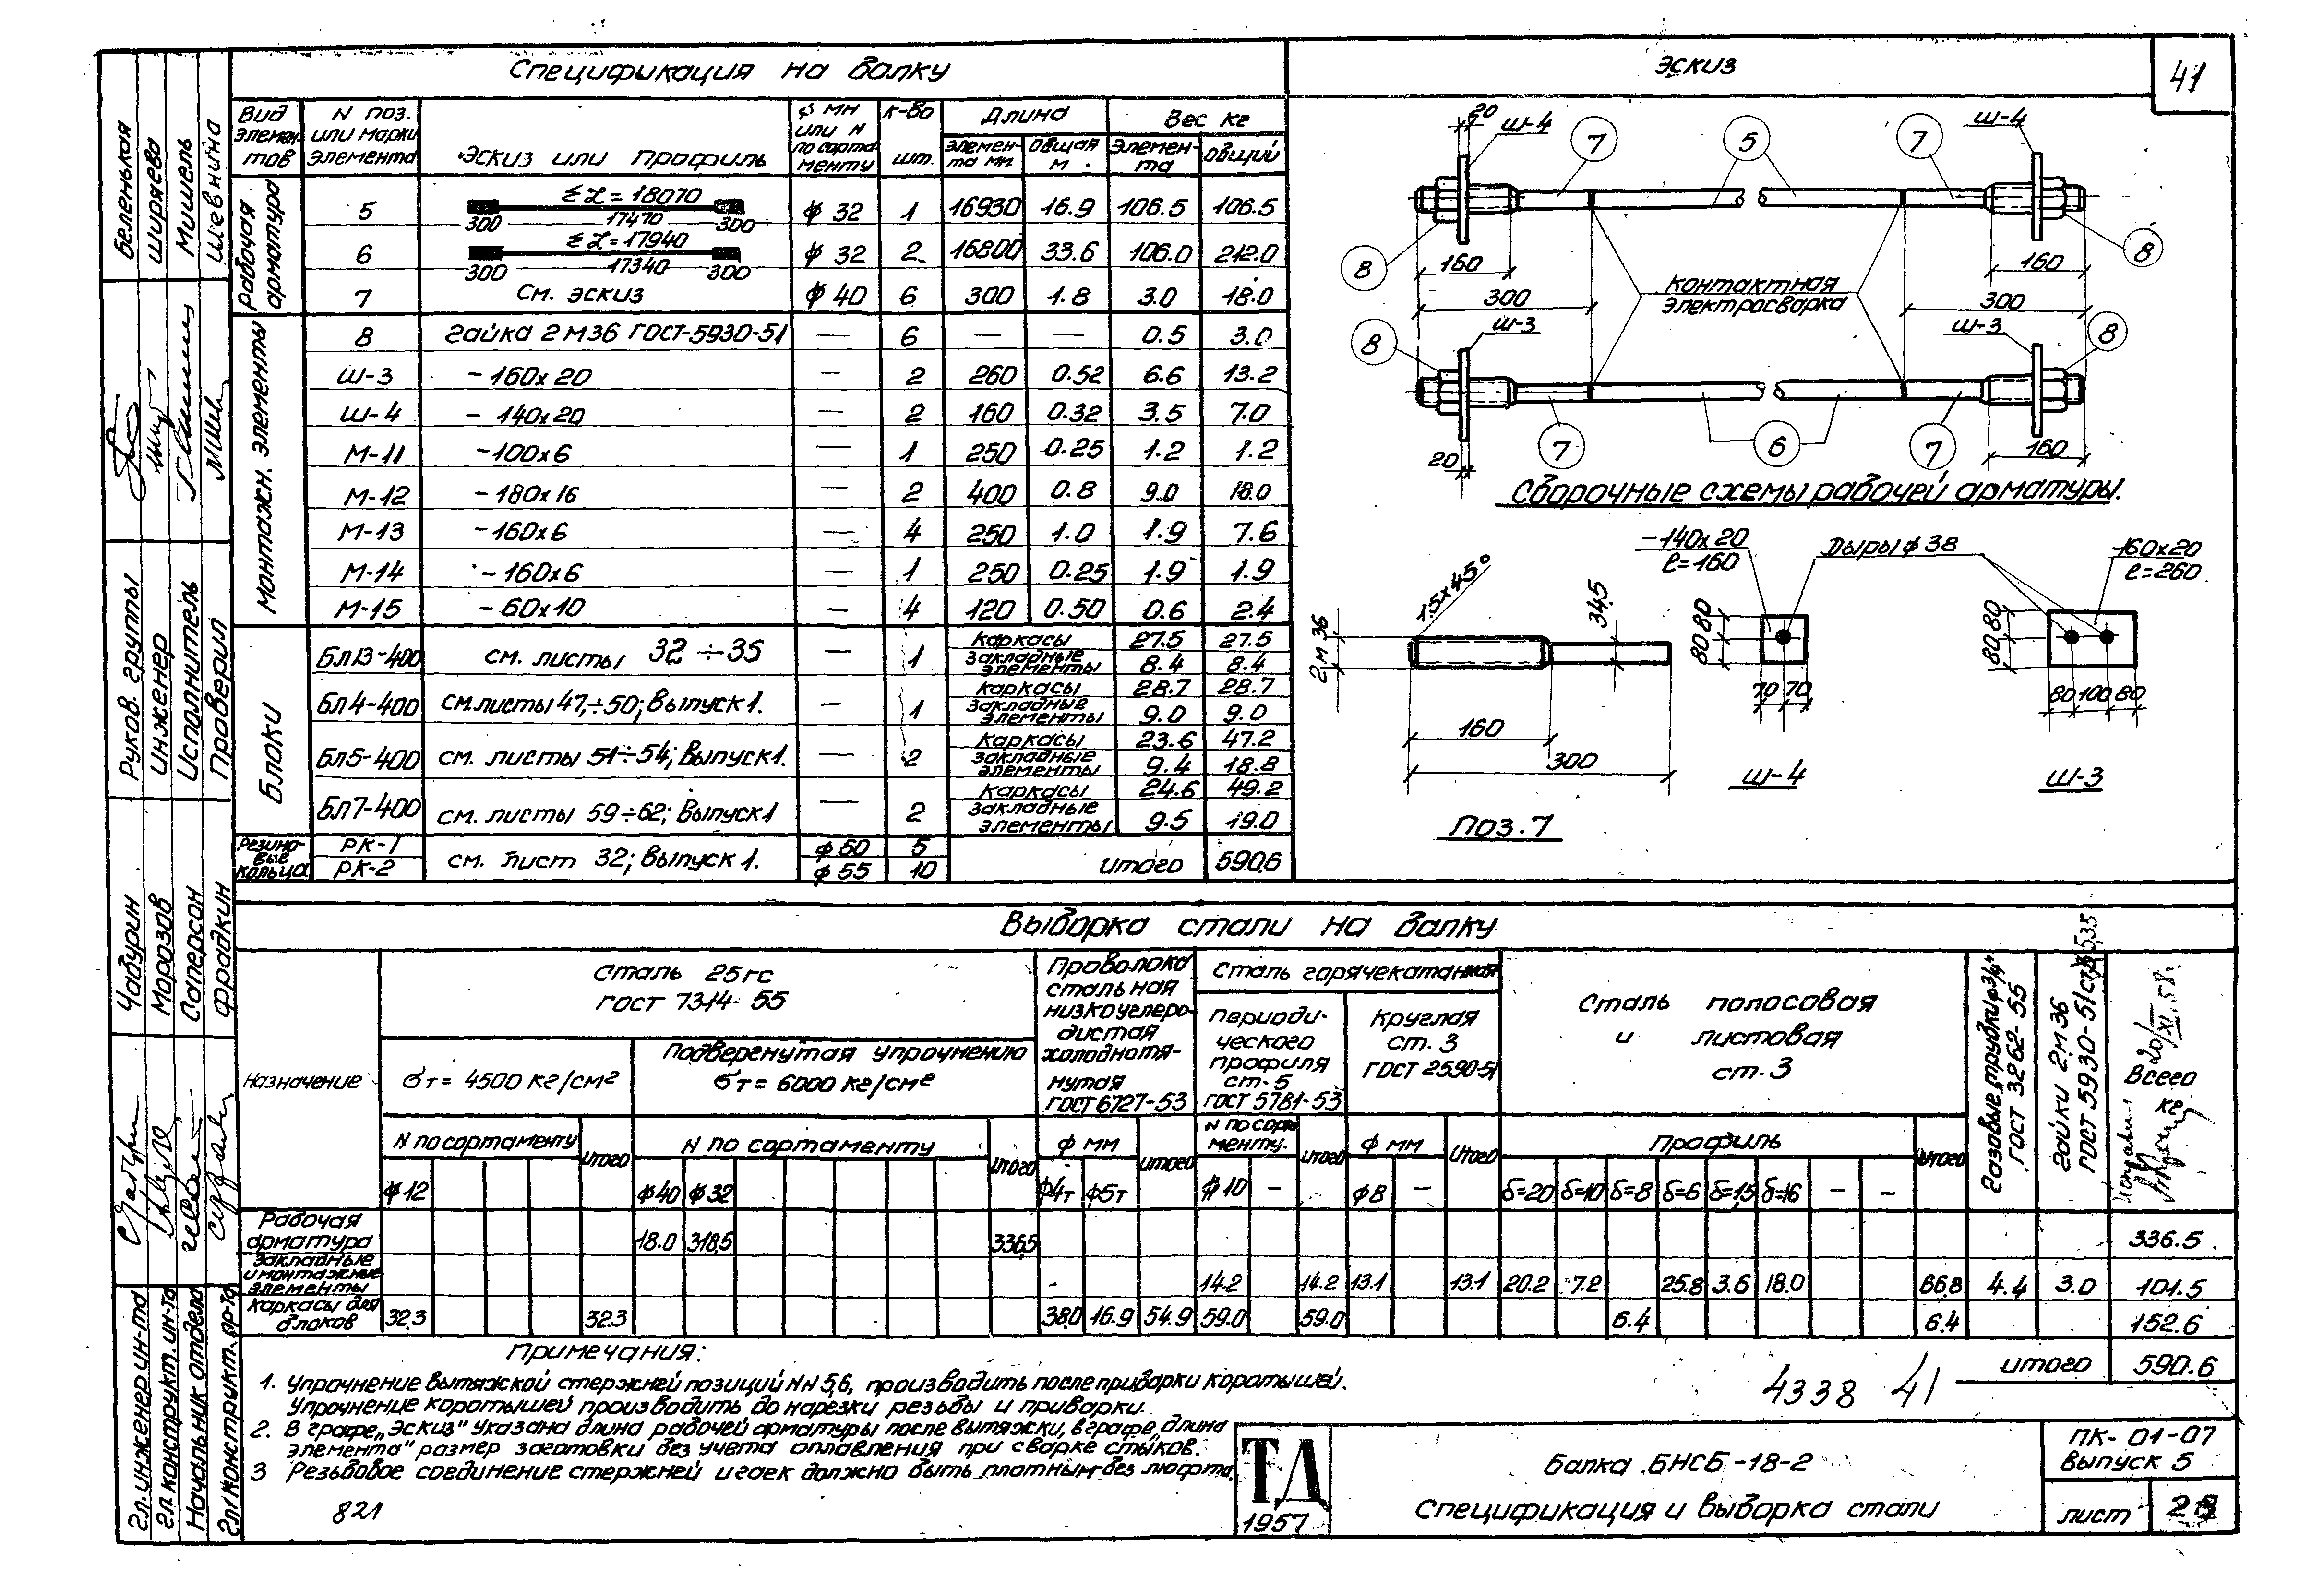 41
Спецификация на балку
Эскиз
Вид элементов
N поз. или марки элемента
Эскиз или профиль
ϕ мм или N по сортаменту
К-во шт.
Длина
Вес кг
Элемента мм
Общая м
Элемента
Общий
Рабочая арматура
5 Σℒ=18070 300 17470 300 ϕ 32 1 16930 16.9 106.5 106.5
6 Σℒ=17940 300 17340 300 ϕ 32 2 16800 33.6 106.0 212.0
7 См. эскиз ϕ 40 6 300 1.8 3.0 18.0
Монтажн. элементы
8 Гайка 2М36 ГОСТ-5930-51 — 6 — — 0.5 3.0
Ш-3 -160х20 — 2 260 0.52 6.6 13.2
Ш-4 -140х20 — 2 160 0.32 3.5 7.0
М-11 -100х6 — 1 250 0.25 1.2 1.2
М-12 -180х16 — 2 400 0.8 9.0 18.0
М-13 -160х6 — 4 250 1.0 1.9 7.6
М-14 -160х6 — 1 250 0.25 1.9 1.9
М-15 -60х10 — 4 120 0.50 0.6 2.4
Блоки
Бл13-400 см. листы 32÷35 — 1 Каркасы 27.5 27.5
Закладные элементы 8.4 8.4
Бл4-400 см.листы 47÷50; Выпуск 1. — 1 Каркасы 28.7 28.7
Закладные элементы 9.0 9.0
Бл5-400 см. листы 51÷54; Выпуск 1. — 2 Каркасы 23.6 47.2
Закладные элементы 9.4 18.8
Бл7-400 см. листы 59÷62; Выпуск 1 — 2 Каркасы 24.6 49.2
Закладные элементы 9.5 19.0
Резиновые кольца
РК-1 ϕ60 5
РК-2 см. лист 32; Выпуск 1. ϕ55 10
Итого 590.6
20 Ш-4 7 5 7 Ш-4
8 160 160 8
300 Контактная электросварка 300
8 Ш-3 Ш-3 8
20 7 6 7 160
Сборочные схемы рабочей арматуры.
1.5х45°
2м 36
34.5
160
300
Поз. 7
-140х20
ℓ=160
Дыры ϕ 38
80 80
70 70
Ш-4
160х20
ℓ=260
80 80
80 100 80
Ш-3
Выборка стали на балку
Назначение
Сталь 25гс
ГОСТ 7314-55
σт= 4500 кг/см²
Подвергнутая упрочнению
σт= 6000 кг/см²
Проволока стальная низкоуглеродистая холоднотянутая ГОСТ 6727-53
Сталь горячекатанная
Периодического профиля ст-5 ГОСТ 5781-53
Круглая ст. 3 ГОСТ 2590-51
Сталь полосовая и листовая ст. 3
Газовые трубки ϕ3/4" ГОСТ 3262-55
Гайки 2м36 ГОСТ 5930-51
Всего кг
N по сортаменту Итого
N по сортаменту Итого
ϕ мм Итого
N по сортаменту. Итого
ϕ мм Итого
Профиль Итого
ϕ12 ϕ40 ϕ32 ϕ4т ϕ5т ϕ10 — ϕ8 — δ=20 δ=10 δ=8 δ=6 δ=1,5 δ=16 — —
Рабочая арматура 18.0 318.5 336.5 336.5
Закладные и монтажные элементы 14.2 14.2 13.1 13.1 20.2 7.2 25.8 3.6 18.0 66.8 4.4 3.0 101.5
Каркасы для блоков 32.3 32.3 38.0 16.9 54.9 59.0 59.0 6.4 6.4 152.6
Итого 590.6
Примечания:
1. Упрочнение вытяжкой стержней позиций NN 5,6, производить после приварки коротышей.
Упрочнение коротышей производить до нарезки резьбы и приварки.
2. В графе „Эскиз" указана длина рабочей арматуры после вытяжки, в графе „длина
элемента" размер заготовки без учета оплавления при сварке стыков.
3 Резьбовое соединение стержней и гаек должно быть плотным-без люфта.
821
4338 41
ТД
1957
Балка БНСБ-18-2
Спецификация и выборка стали
ПК-01-07
Выпуск 5
лист
Беленькая
Ширяева
Мишель
Шевнина
Руков. группы
Инженер
Исполнитель
Проверил
Чабурин
Морозов
Саперсон
Фрадкин
Гл. инженер ин-та
Гл. конструкт. ин-та
Начальник отдела
Гл. конструкт. пр-та